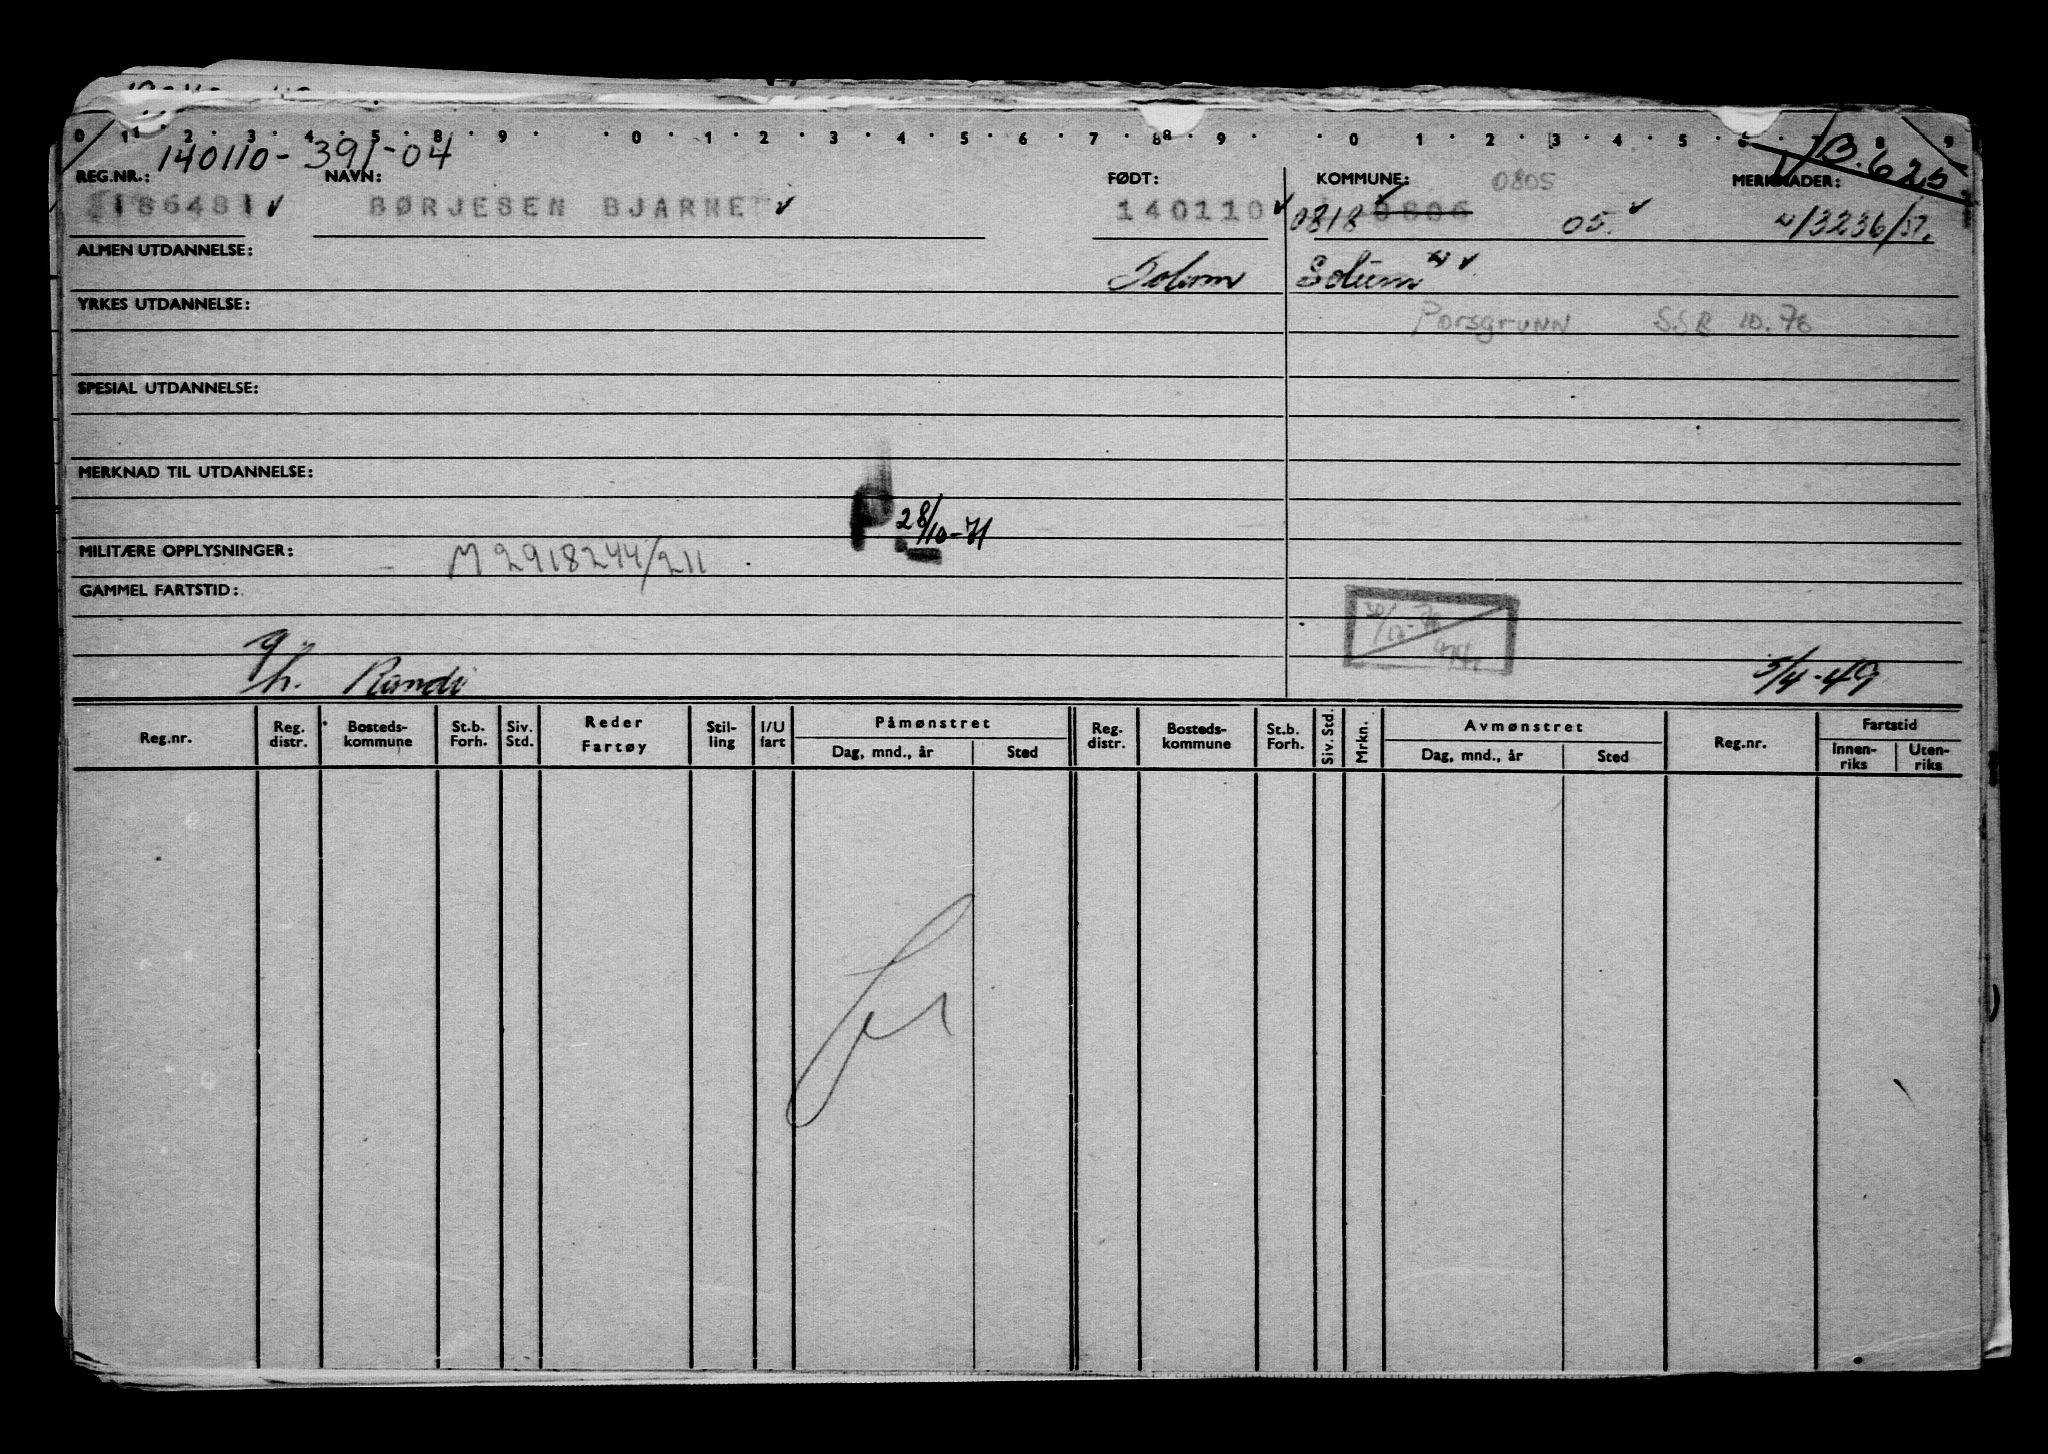 0 1 2 3 4 5 8 9 0 1 2 3 4 5 6 7 8 9 0 1 2 3 4 5 6 8 9
140110-391-04 B.625
REG.NR.: NAVN: FØDT: KOMMUNE: 0805 MERKNADER:
186481 BØRJESEN BJARNE 140110 0818 0806 05. 13236/57.
ALMEN UTDANNELSE: Solum Solum
YRKES UTDANNELSE: Porsgrunn SSR 10.76
SPESIAL UTDANNELSE:
MERKNAD TIL UTDANNELSE:
P. 28/10-71
MILITÆRE OPPLYSNINGER: M2918244/211
GAMMEL FARTSTID:
g/h. Randi 5/4-49
Reg.nr. Reg. distr. Bosteds-kommune St.b. Forh. Siv. Std. Reder Fartøy Stil-ling I/U fart Påmønstret Dag, mnd., år Sted Reg. distr. Bosteds-kommune St.b. Forh. Siv. Std. Mrkn. Avmønstret Dag, mnd., år Sted Reg.nr. Fartstid Innen-riks Uten-riks